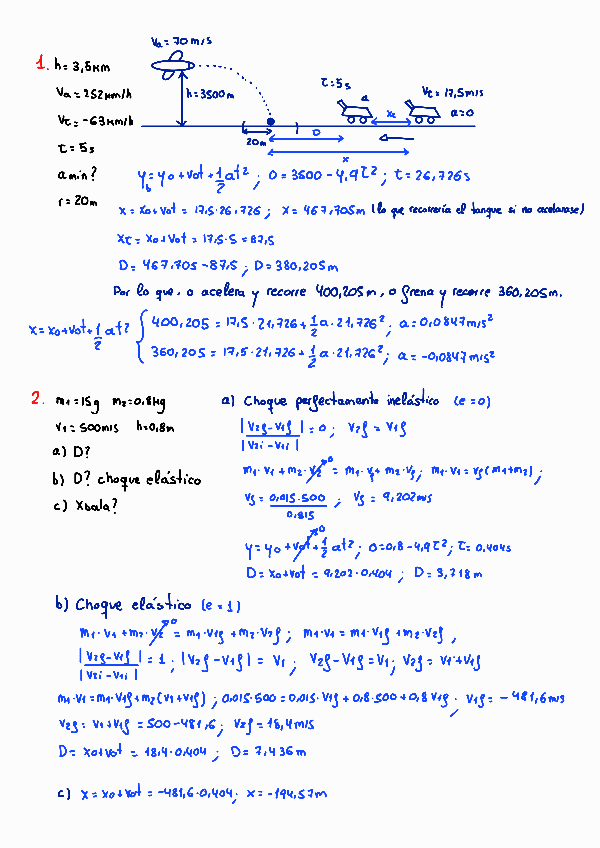 Va = 70 m/s
1. h = 3,5 km
τ = 5s
Va = 252 km/h
h = 3500 m
a
Vt = 17,5 m/s
Vt = -63 km/h
xτ
a = 0
τ = 5s
20m
D
x
a min?
y_b = y0 + v0t + 1/2 at²; 0 = 3500 - 4,9t²; t = 26,726s
r = 20m
x = x0 + v0t = 17,5·26,726; x = 467,705m (lo que recorrería el tanque si no acelerase)
xτ = x0 + v0t = 17,5·5 = 87,5
D = 467,705 - 87,5; D = 380,205m
Por lo que, o acelera y recorre 400,205m, o frena y recorre 360,205m.
x = x0 + v0t + 1/2 at²
400,205 = 17,5·21,726 + 1/2 a·21,726²; a = 0,0847 m/s²
360,205 = 17,5·21,726 + 1/2 a·21,726²; a = -0,0847 m/s²
2. m1 = 15g m2 = 0,8kg
v1 = 500m/s h = 0,8m
a) D?
b) D? choque elástico
c) Xbala?
a) Choque perfectamente inelástico (e = 0)
|v2f - v1f| / |v2i - v1i| = 0; v2f = v1f
m1·v1 + m2·v2 = m1·vf + m2·vf; m1·v1 = vf(m1 + m2);
0
vf = 0,015·500 / 0,815; vf = 9,202m/s
y = y0 + v0t + 1/2 at²; 0 = 0,8 - 4,9t²; t = 0,404s
0
D = x0 + v0t = 9,202·0,404; D = 3,718m
b) Choque elástico (e = 1)
m1·v1 + m2·v2 = m1·v1f + m2·v2f; m1·v1 = m1·v1f + m2·v2f;
0
|v2f - v1f| / |v2i - v1i| = 1; |v2f - v1f| = v1; v2f - v1f = v1; v2f = v1 + v1f
m1·v1 = m1·v1f + m2(v1 + v1f); 0,015·500 = 0,015·v1f + 0,8·500 + 0,8v1f; v1f = -481,6m/s
v2f = v1 + v1f = 500 - 481,6; v2f = 18,4m/s
D = x0 + v0t = 18,4·0,404; D = 7,436m
c) x = x0 + v0t = -481,6·0,404; x = -194,57m